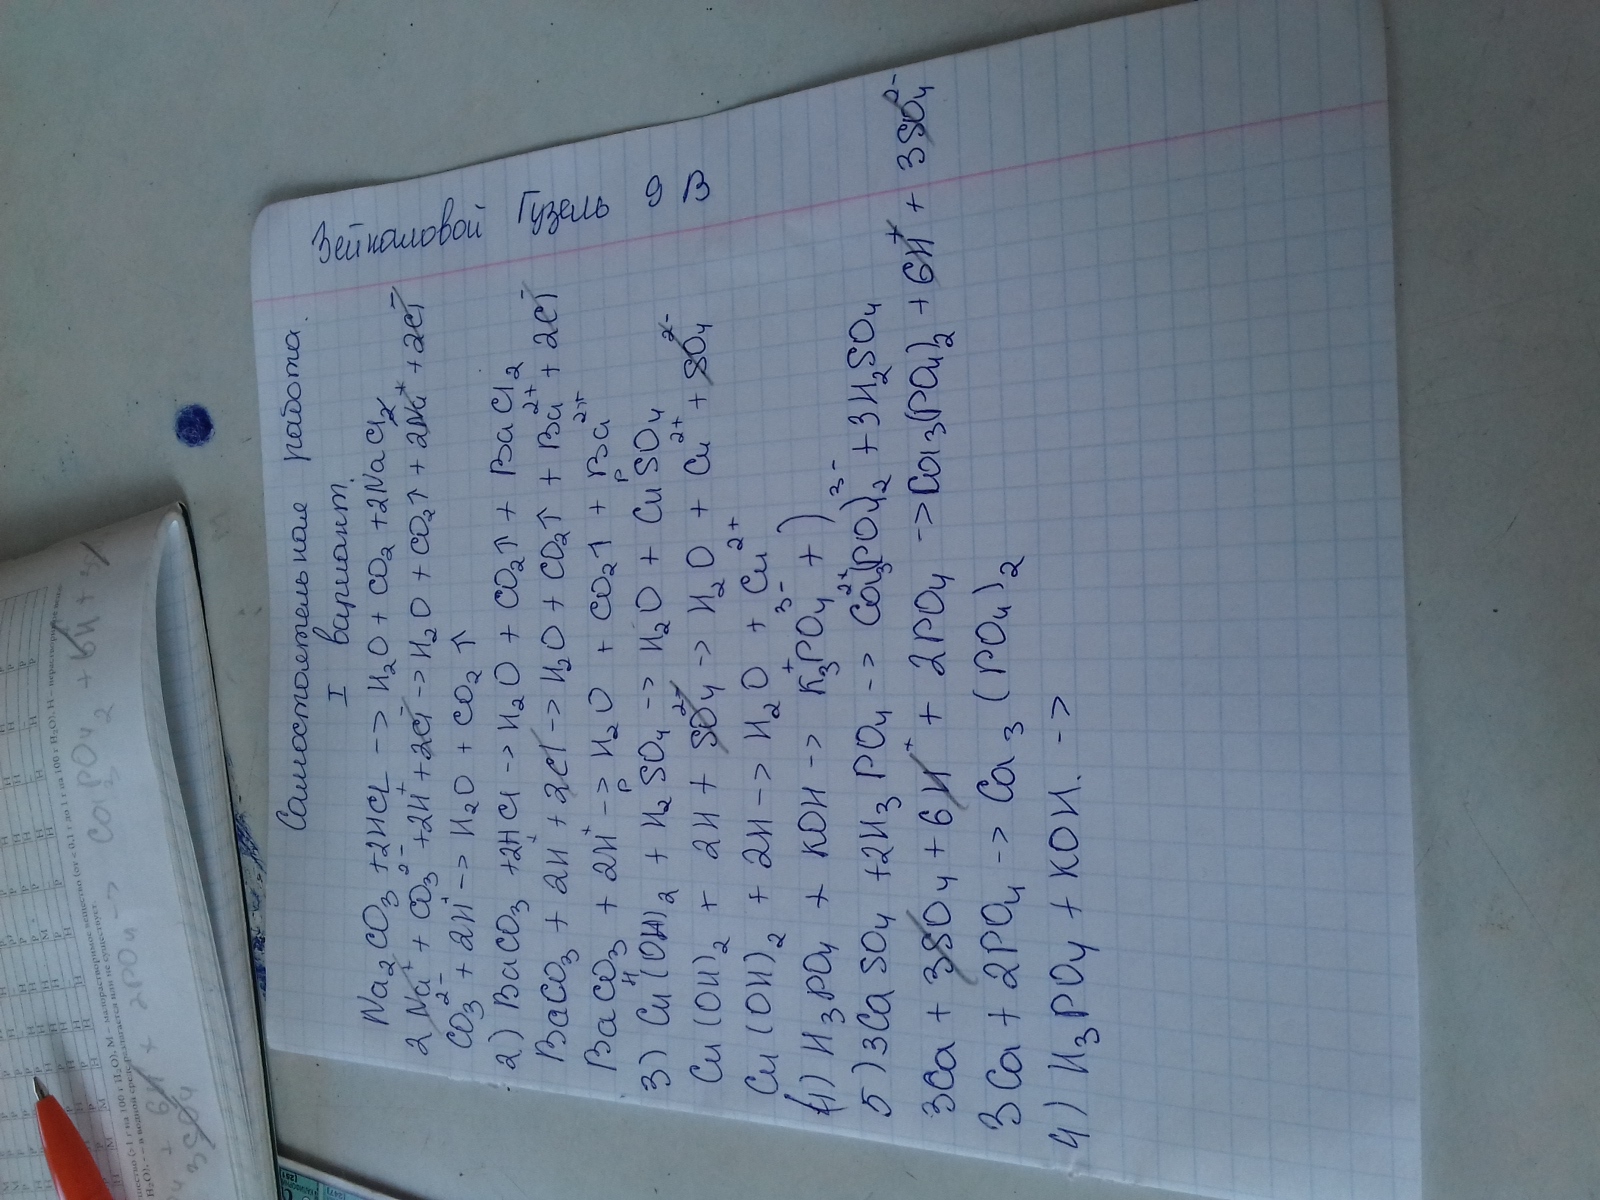 М – малорастворимое вещество (от < 0,1 г до 1 г на 100 г H₂O), Н – нерастворимое
(>1 г на 100 г H₂O),
H₂O), – – в водной среде разлагается или не существует.
+ 6H + 2PO₄ → Ca₃PO₄ ₂ + 6H + 3
3SO₄
Самостоятельная работа.
I вариант.
Na₂CO₃ +2HCl → H₂O + CO₂ +2NaCl₂
2Na⁺ + CO₃²⁻ +2H⁺ +2Cl⁻ → H₂O + CO₂↑ + 2Na⁺ + 2Cl⁻
CO₃²⁻ + 2H⁺ → H₂O + CO₂ ↑
2) BaCO₃ +2HCl → H₂O + CO₂↑ + BaCl₂
BaCO₃ + 2H⁺ + 2Cl⁻ → H₂O + CO₂↑ + Ba²⁺ + 2Cl⁻
BaCO₃ + 2H⁺ → H₂O + CO₂↑ + Ba²⁺
Н Р Р
3) Cu(OH)₂ + H₂SO₄ → H₂O + CuSO₄
Cu(OH)₂ + 2H + SO₄²⁻ → H₂O + Cu²⁺ + SO₄²⁻
Cu(OH)₂ + 2H → H₂O + Cu²⁺
(4) H₃PO₄ + KOH → K₃⁺PO₄³⁻ + )
5) 3CaSO₄ +2H₃PO₄ → Ca₃²⁺(PO₄)₂³⁻ +3H₂SO₄
3Ca + 3SO₄ + 6H⁺ + 2PO₄ → Ca₃(PO₄)₂ + 6H⁺ + 3SO₄²⁻
3Ca + 2PO₄ → Ca₃(PO₄)₂
4) H₃PO₄ + KOH. →
Гузель 9 В